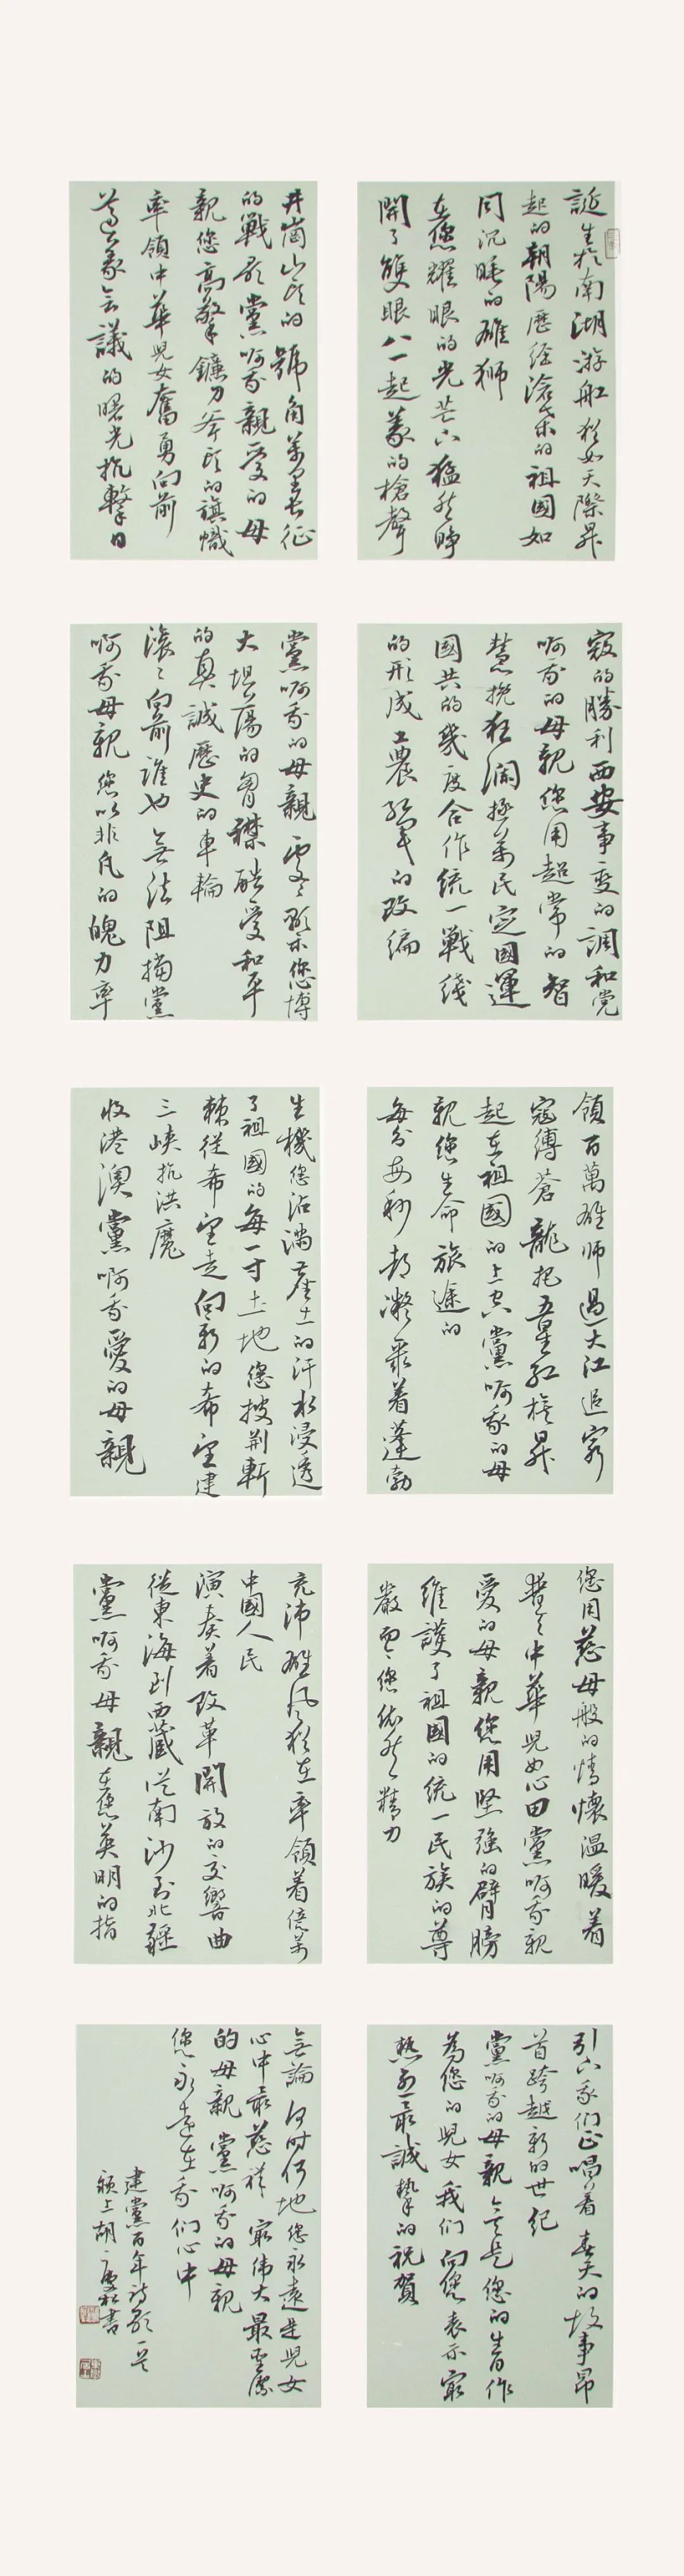 誕生於南湖游船猶如天際昇
起的朝陽歷經滄桑的祖國如
同沉睡的雄獅
在您耀眼的光芒下猛然睜
開了雙眼八一起義的槍聲
井崗山頭的號角萬里長征
的戰歌黨啊我親愛的母
親您高擎鐮刀斧頭的旗幟
率領中華兒女奮勇向前
遵義會議的曙光抗擊日
寇的勝利西安事变的調和党
啊我的母親您用超常的智
慧挽狂瀾拯萬民定國運
國共的幾度合作統一戰綫
的形成工農紅軍的改編
黨啊我的母親處處顯示您博
大坦蕩的胸襟酷愛和平
的真誠歷史的車輪
滾滾向前誰也無法阻擋黨
啊我母親您以非凡的魄力率
領百萬雄师過大江追窮
寇縛蒼龍把五星紅旗昇
起在祖國的上空黨啊我的母
親您生命旅途的
每分每秒都凝聚着蓬勃
生機您沾滿塵土的汗水浸透
了祖國的每一寸土地您披荆斬
棘從希望走向新的希望建
三峽抗洪魔
收港澳黨啊我愛的母親
您用慈母般的情懷温暖着
普天中華兒女心田黨啊我親
愛的母親您用堅强的臂膀
維護了祖國的統一民族的尊
嚴而今您依然精力
充沛雄风猶在率領着億萬
中國人民
演奏着改革開放的交響曲
從東海到西藏從南沙到北疆
黨啊我母親在您英明的指
引下我們正唱着春天的故事昂
首跨越新的世紀
黨啊我的母親今天是您的生日作
為您的兒女我们向您表示最
熱烈最誠摯的祝賀
無論何时何地您永遠是兒女
心中最慈祥最偉大最聖潔
的母親黨啊我的母親
您永遠在我们心中
建黨百年詩歌一首
頴上胡慶松書